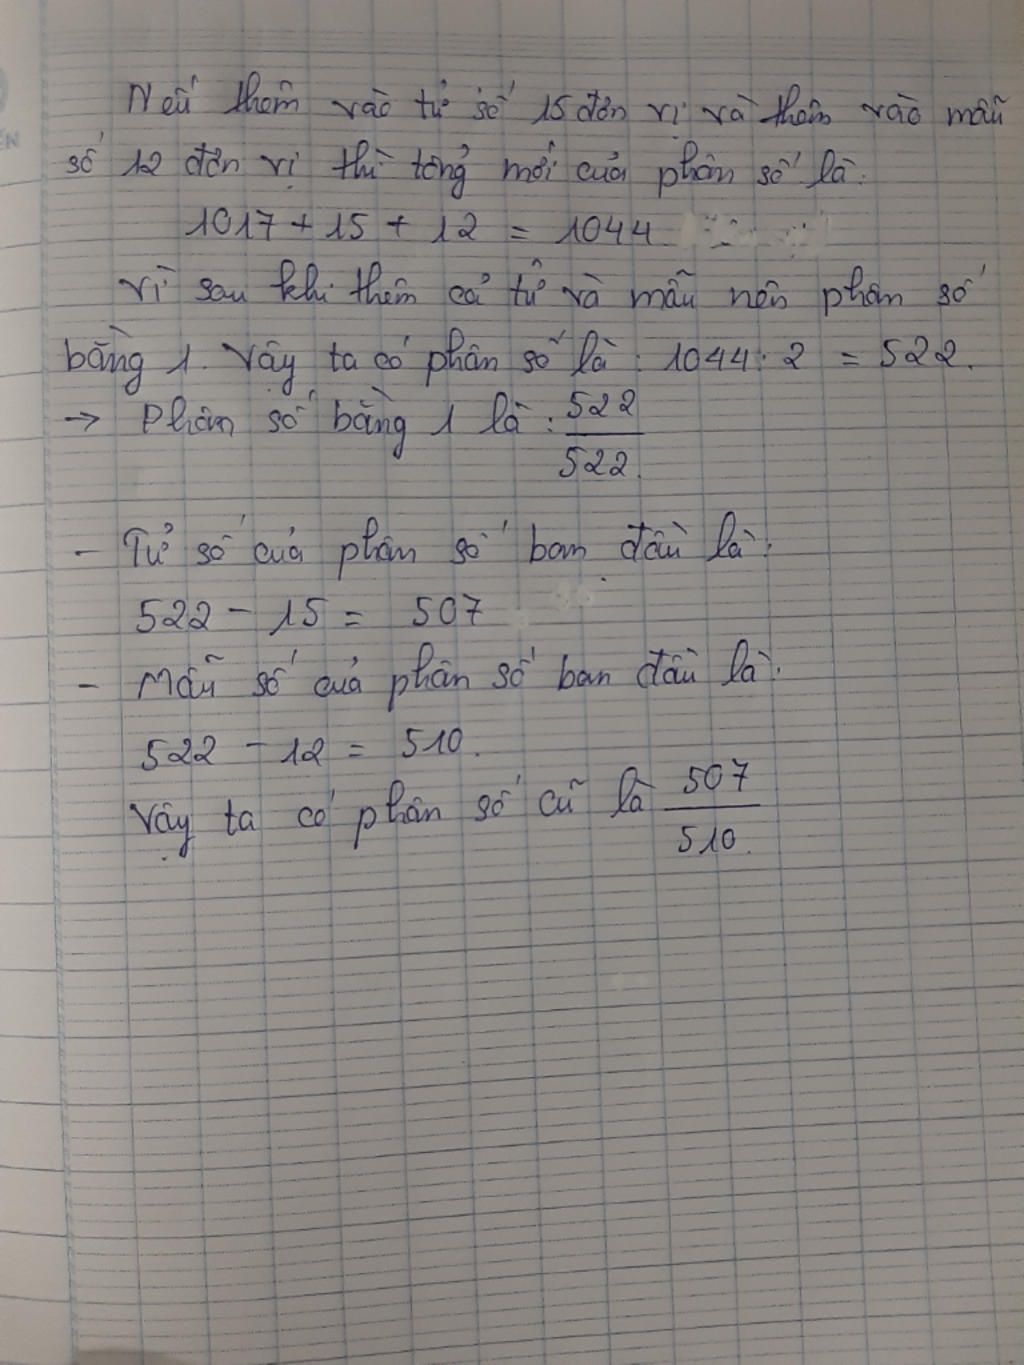 Nếu thêm vào tử số 15 đơn vị và thêm vào mẫu
số 12 đơn vị thì tổng mới của phân số là:
1017 + 15 + 12 = 1044
Vì sau khi thêm cả tử và mẫu nên phân số
bằng 1. Vậy ta có phân số là: 1044 : 2 = 522.
→ Phân số bằng 1 là: 522
522.
- Tử số của phân số ban đầu là:
522 - 15 = 507
- Mẫu số của phân số ban đầu là:
522 - 12 = 510.
Vậy ta có phân số cũ là 507
510.